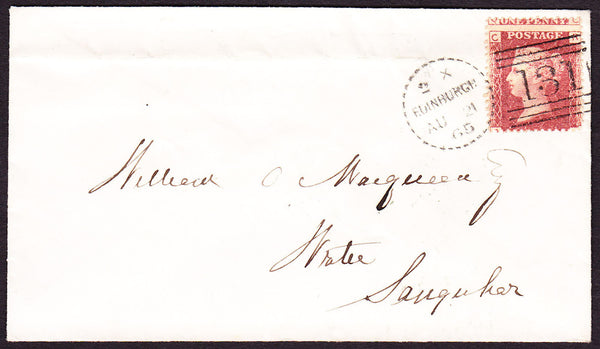 ONE PENNY
C
POSTAGE
131
X
EDINBURGH
AU 21
65
William O Macqueen Esq
Writer
Sanquhar